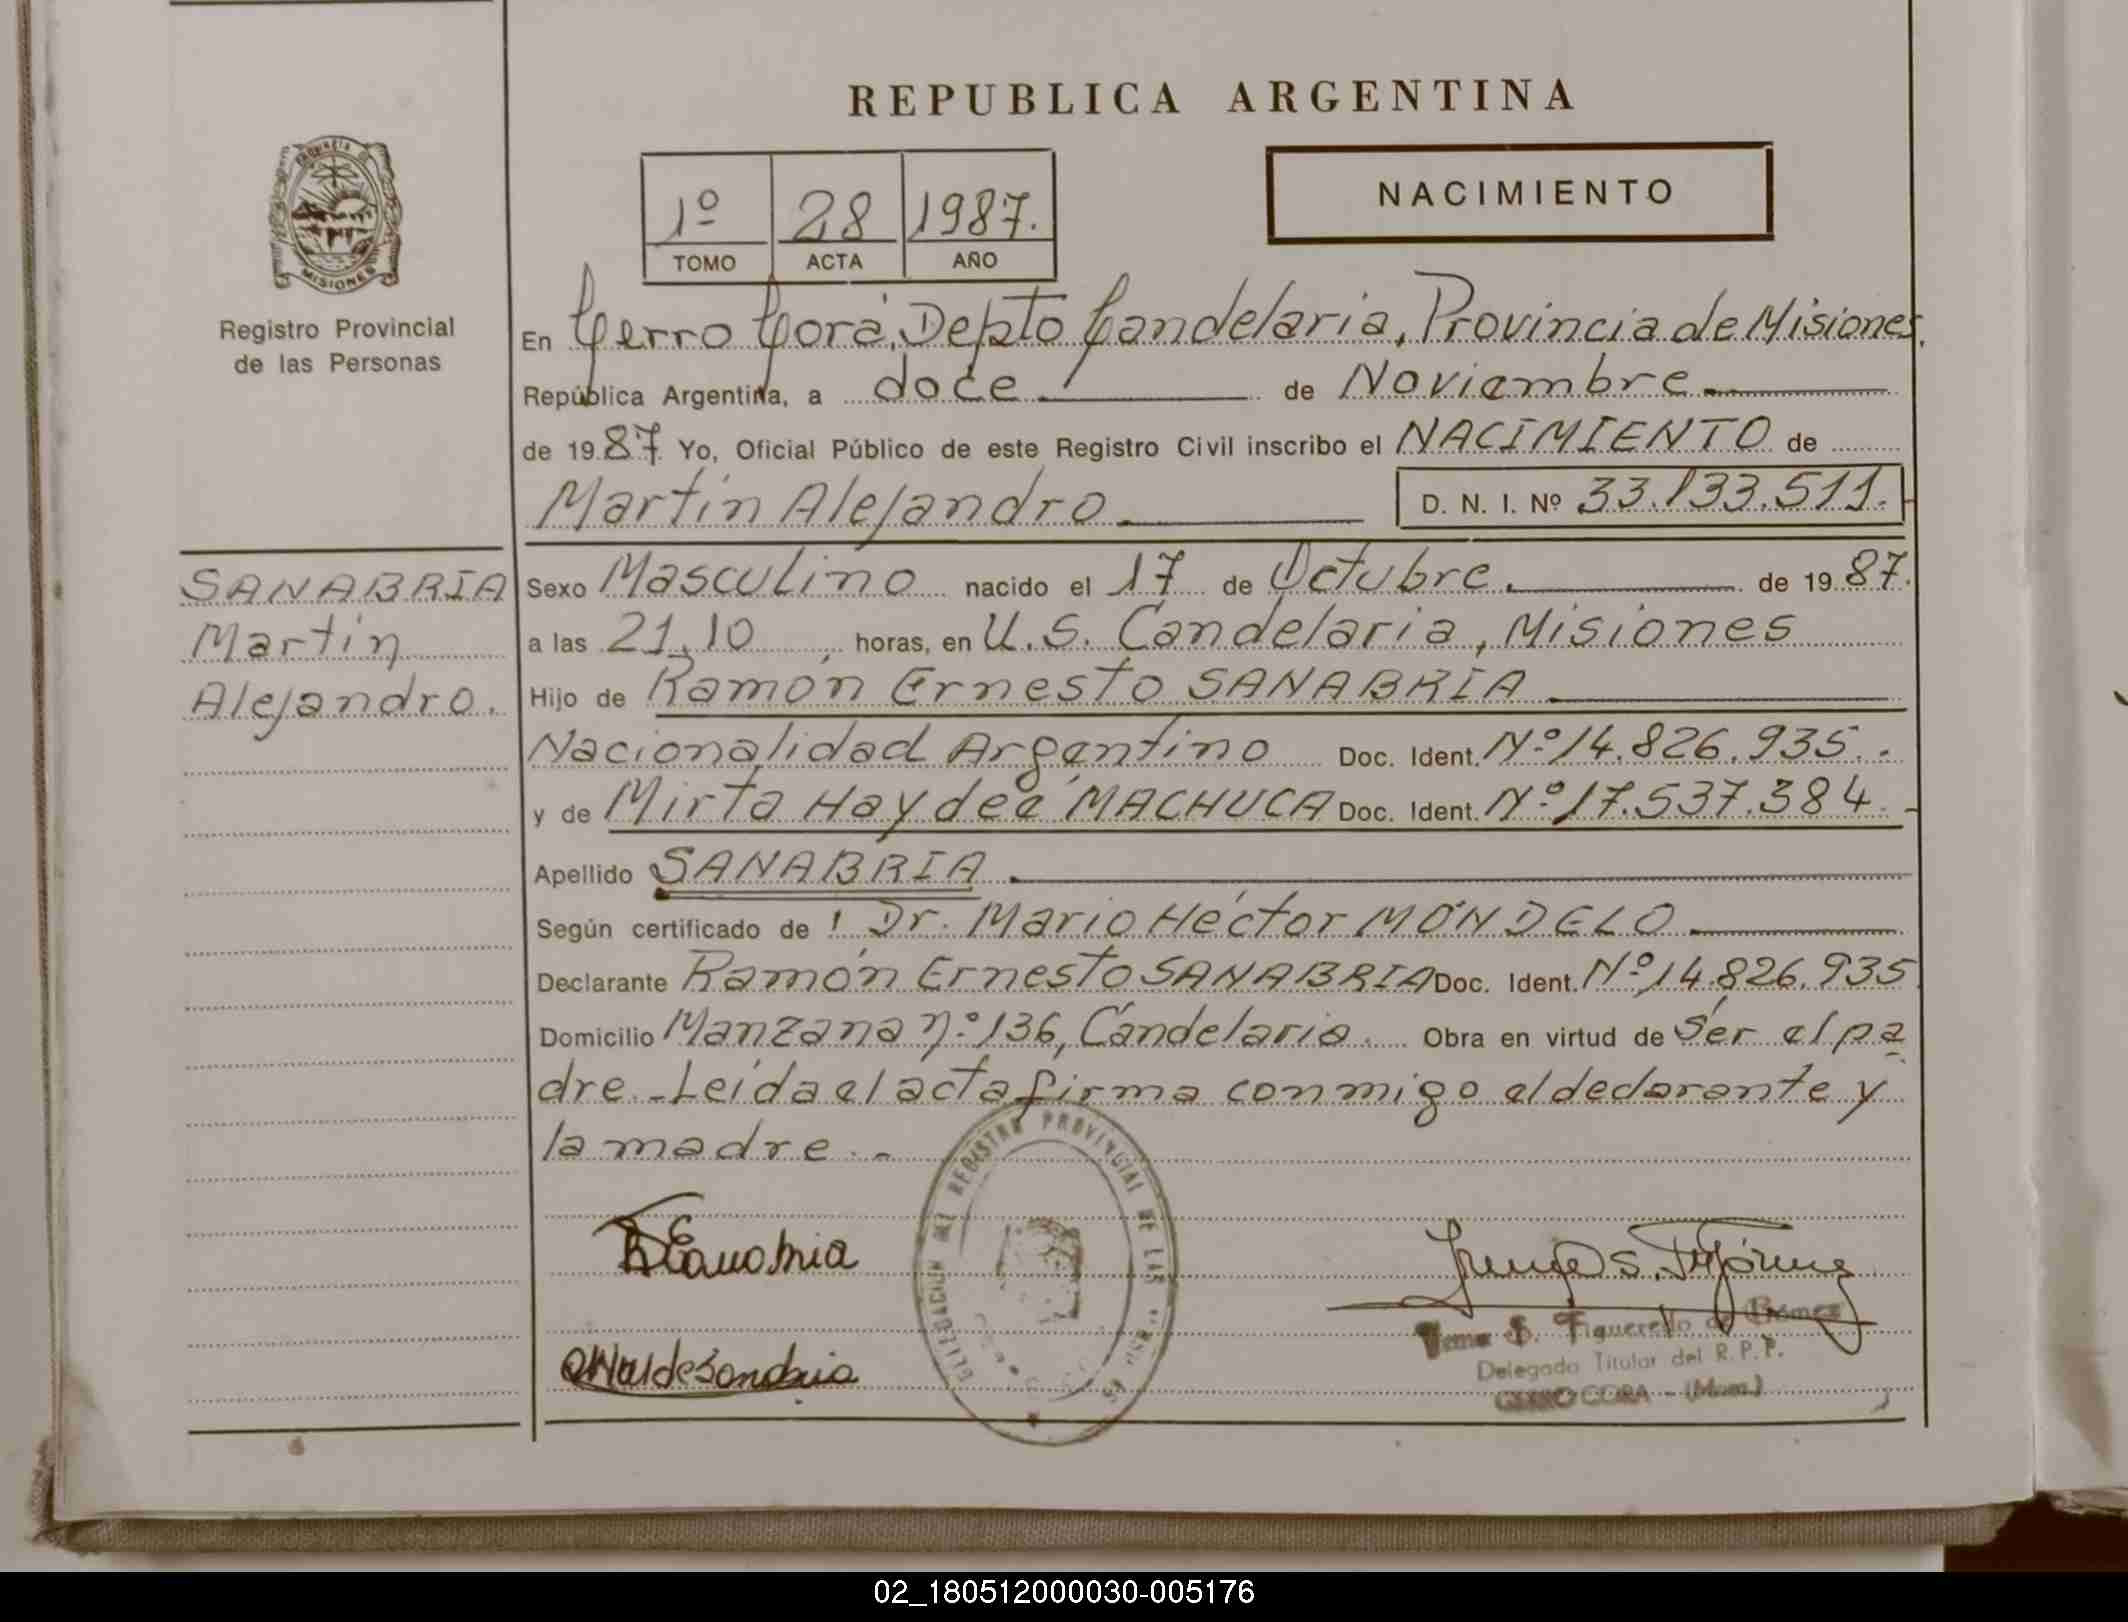 REPUBLICA ARGENTINA
PROVINCIA DE MISIONES
Registro Provincial
de las Personas
1º 28 1987.
TOMO ACTA AÑO
NACIMIENTO
En Cerro Corá, Depto Candelaria, Provincia de Misiones,
República Argentina, a doce de Noviembre
de 1987. Yo, Oficial Público de este Registro Civil inscribo el NACIMIENTO de
Martín Alejandro D. N. I. Nº 33.133.511.
SANABRIA
Martín
Alejandro.
Sexo Masculino nacido el 17 de Octubre de 1987.
a las 21,10 horas, en U.S. Candelaria, Misiones
Hijo de Ramón Ernesto SANABRIA
Nacionalidad Argentino Doc. Ident. Nº 14.826.935.
y de Mirta Haydeé MACHUCA Doc. Ident. Nº 17.537.384.-
Apellido SANABRIA
Según certificado de l Dr. Mario Héctor MÓNDELO
Declarante Ramón Ernesto SANABRIA Doc. Ident. Nº 14.826.935
Domicilio Manzana nº 136, Candelaria. Obra en virtud de Ser el pa
dre - Leída el acta firma conmigo el declarante y
la madre.-
DELEGACION DEL REGISTRO PROVINCIAL DE LAS
S. Figueredo de Gómez
Delegado Titular del R.P.P.
CERRO CORA - (Mnes.)
02_180512000030-005176